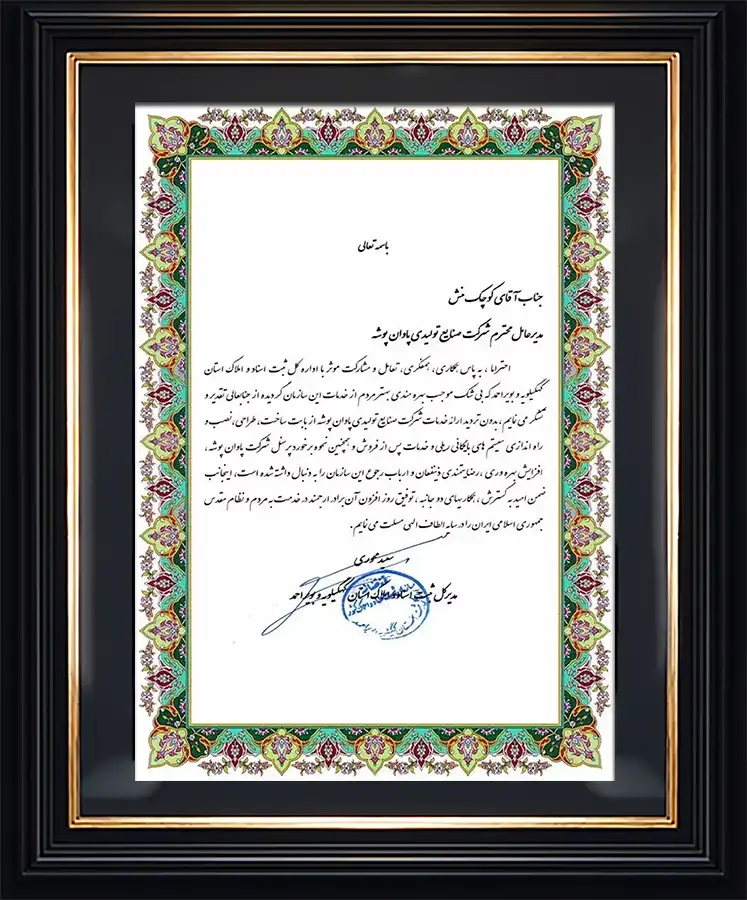 باسمه تعالی
جناب آقای کوچک منش
مدیرعامل محترم شرکت صنایع تولیدی پاوان پوشه
احتراما ، به پاس همکاری، همفکری، تعامل و مشارکت موثر با اداره کل ثبت اسناد و املاک استان
کهگیلویه و بویراحمد که بی شک موجب بهره مندی بهتر مردم از خدمات این سازمان گردیده از جنابعالی تقدیر و
تشکر می نمایم ، بدون تردید ارائه خدمات شرکت صنایع تولیدی پاوان پوشه از بابت ساخت، طراحی، نصب و
راه اندازی سیستم های بایگانی ریلی و خدمات پس از فروش و همچنین نحوه برخورد پرسنل شرکت پاوان پوشه ،
افزایش بهره وری ، رضایتمندی ذینفعان و ارباب رجوع این سازمان را به دنبال داشته شده است، اینجانب
ضمن امید به گسترش ، همکاریهای دو جانبه ، توفیق روز افزون آن برادر ارجمند در خدمت به مردم و نظام مقدس
جمهوری اسلامی ایران را در سایه الطاف الهی مسئلت می نمایم.
سعید محوری
مدیرکل ثبت اسناد و املاک استان کهگیلویه و بویراحمد